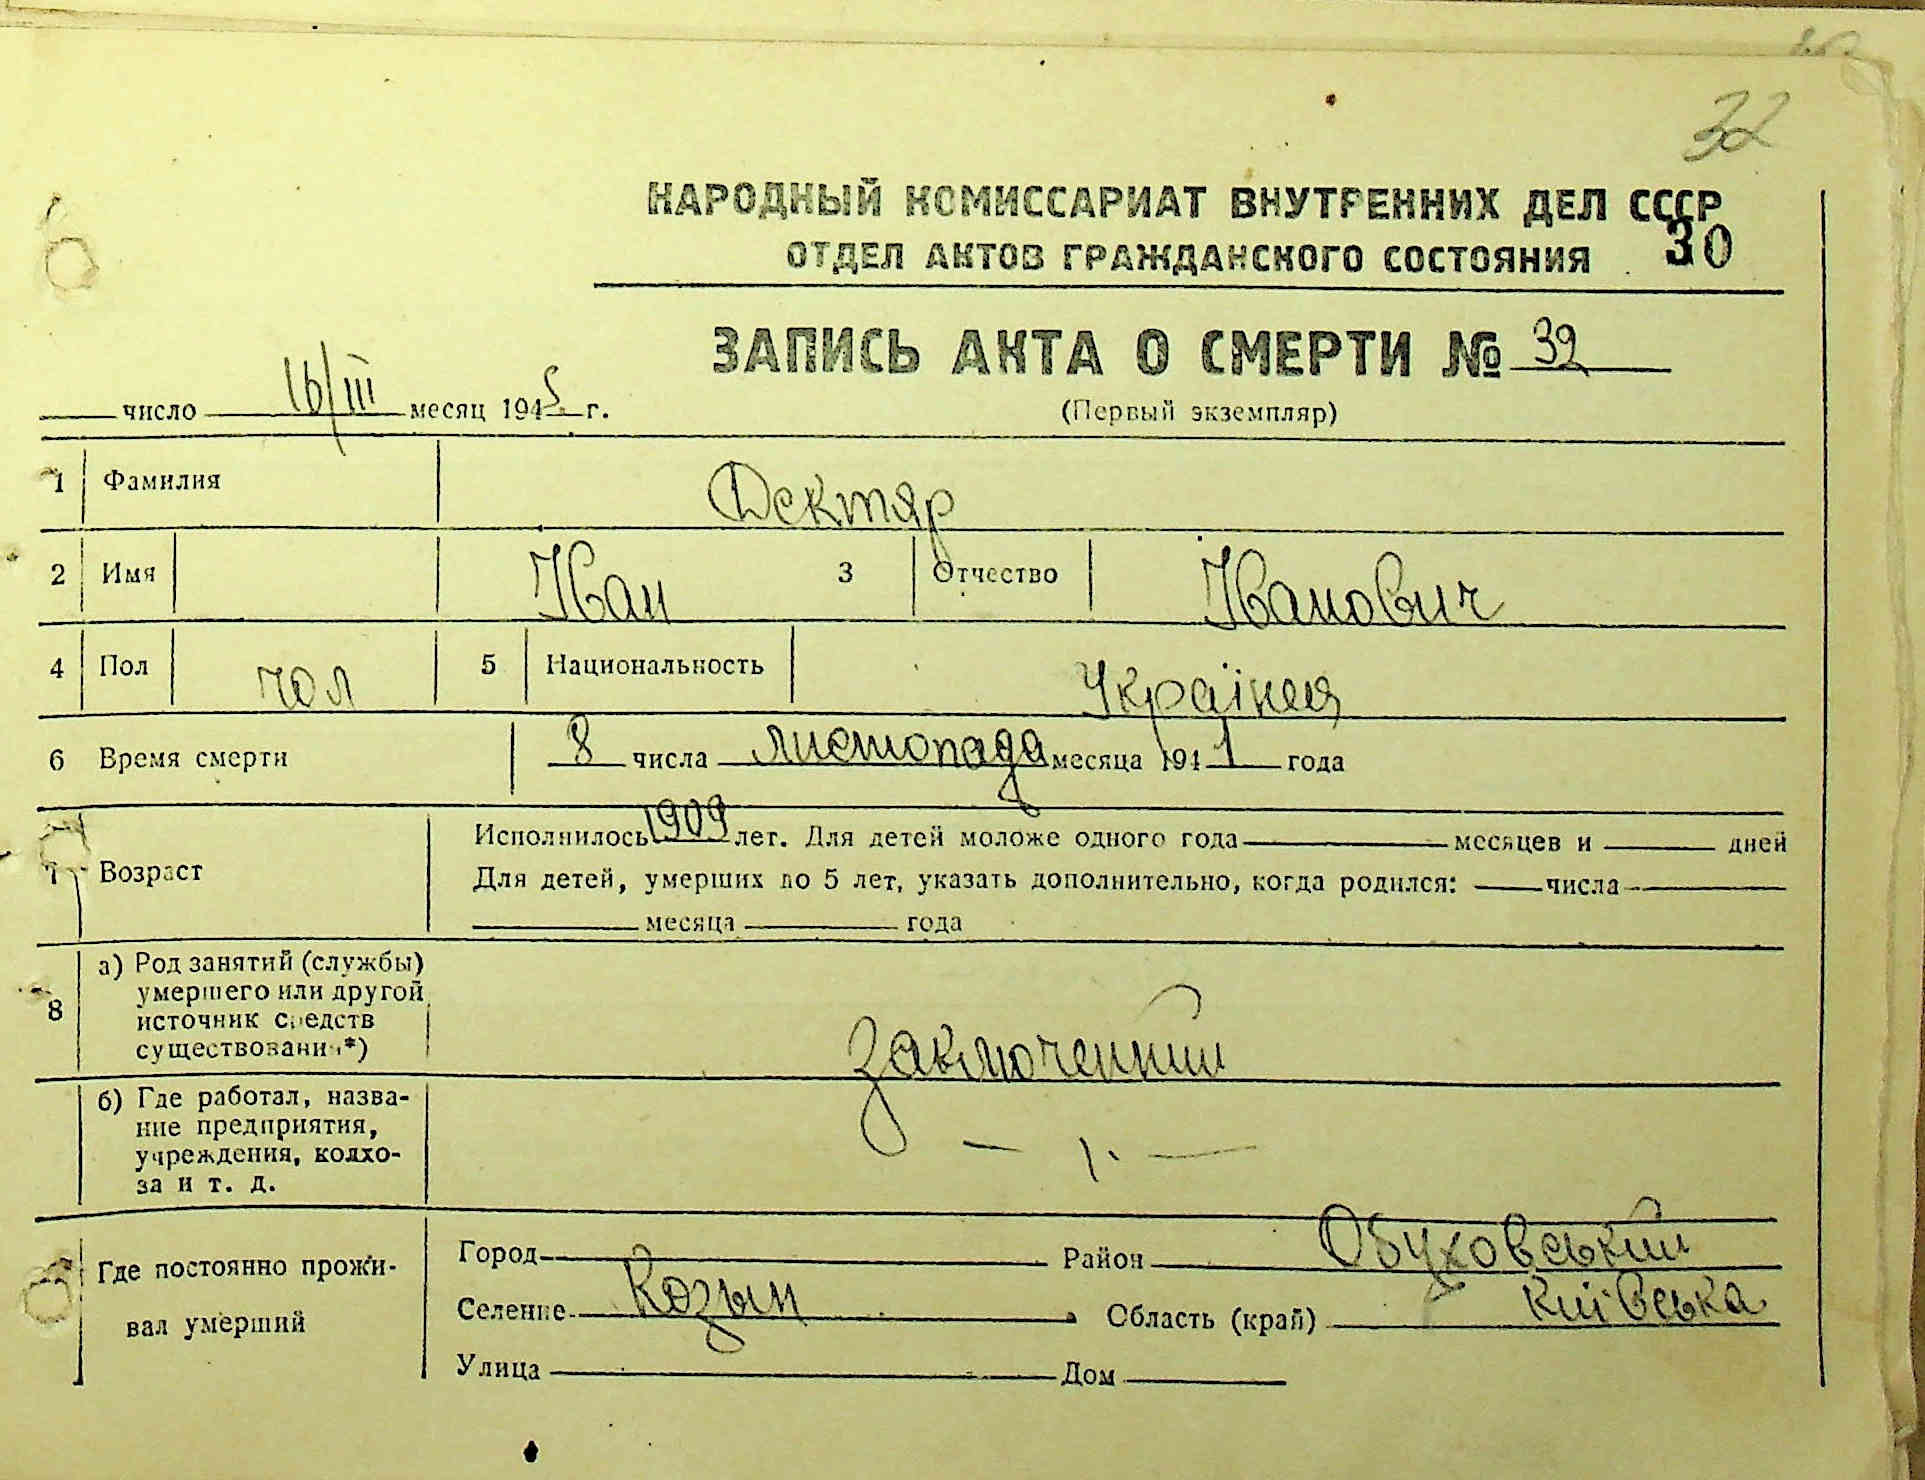 32
НАРОДНЫЙ КОМИССАРИАТ ВНУТРЕННИХ ДЕЛ СССР
ОТДЕЛ АКТОВ ГРАЖДАНСКОГО СОСТОЯНИЯ 30
ЗАПИСЬ АКТА О СМЕРТИ № 32
число 16/III месяц 1945 г. (Первый экземпляр)
1 Фамилия Дектяр
2 Имя Иван 3 Отчество Иванович
4 Пол чол 5 Национальность Українец
6 Время смерти 8 числа листопада месяца 1941 года
7 Возраст Исполнилось 1909 лет. Для детей моложе одного года месяцев и дней
Для детей, умерших до 5 лет, указать дополнительно, когда родился: числа
месяца года
8 а) Род занятий (службы)
умершего или другой
источник средств
существования*) заключенний
б) Где работал, назва-
ние предприятия,
учреждения, колхо-
за и т. д.
Где постоянно прожи-
вал умерший
Город Район Обуховський
Селение Козын Область (край) Київська
Улица Дом